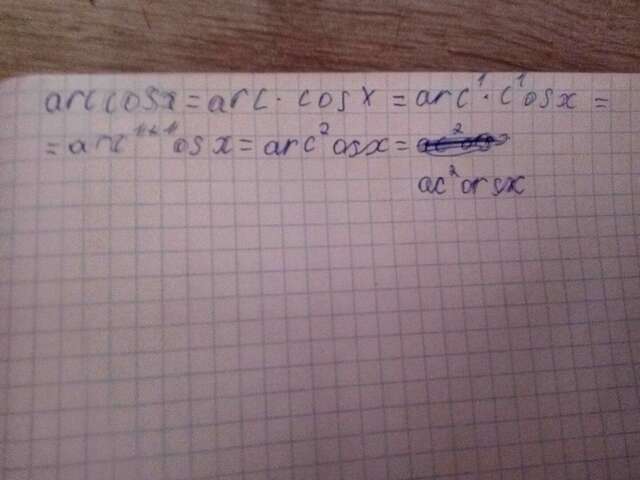 arccosx = arc · cosx = arc¹ · c¹osx =
= arc¹⁺¹osx = arc²osx =
ac²orsx